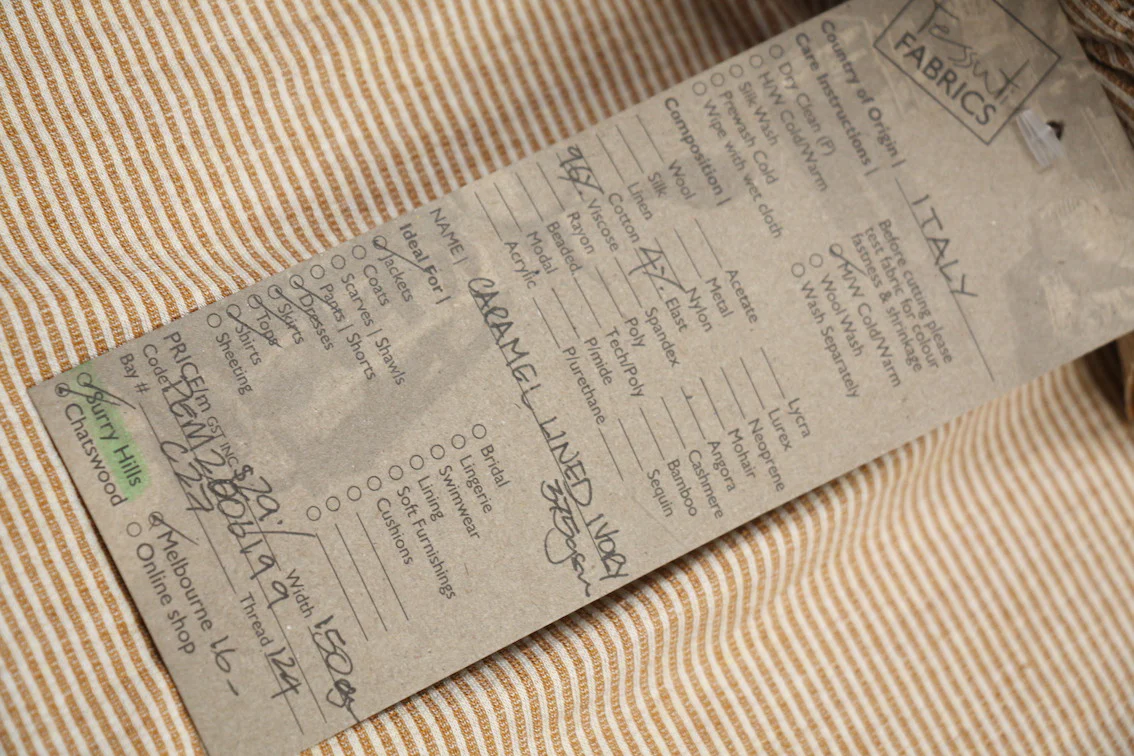 Tessuti
FABRICS
Country of Origin | ITALY
Care Instructions |
Dry Clean (P)
H/W Cold/Warm
Silk Wash
Prewash Cold
Wipe with wet cloth
Before cutting please
test fabric for colour
fastness & shrinkage
M/W Cold/Warm
Wool Wash
Wash Separately
Composition |
Wool
Silk
Linen
Cotton
96% Viscose
Rayon
Beaded
Modal
Acrylic
Acetate
Metal
Nylon
4% Elast
Spandex
Poly
Tech/Poly
P/mide
P/urethane
Lycra
Lurex
Neoprene
Mohair
Angora
Cashmere
Bamboo
Sequin
NAME | CARAMEL LINED IVORY
375gsm
Ideal For |
Jackets
Coats
Scarves | Shawls
Pants | Shorts
Dresses
Skirts
Tops
Shirts
Sheeting
Bridal
Lingerie
Swimwear
Lining
Soft Furnishings
Cushions
PRICE/m GST INC. $29.- Width 150cm
Code Thread 124
Bay # C27
Surry Hills
Chatswood
Melbourne 16-
Online shop